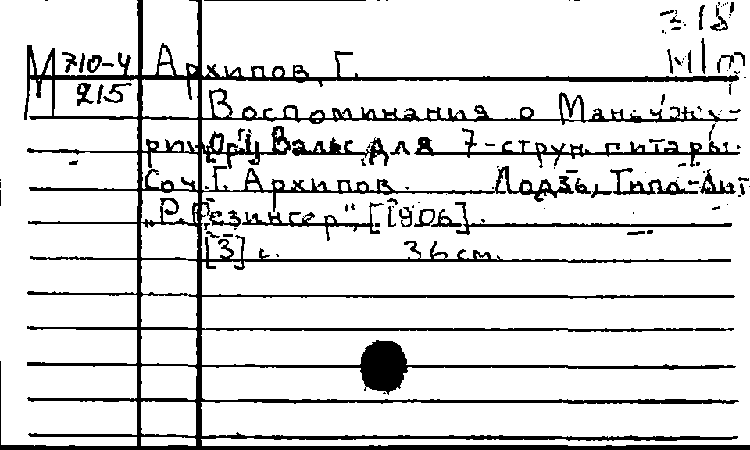 318
М 710-4 Архипов, Г. М/т
215
Воспоминания о Маньчжу-
рии. Вальс для 7-струн. гитары.
Соч. Г. Архипов. Лодзь, Типо-Лит.
„Р. Резингер", [1906].
[3] с. 36 см.